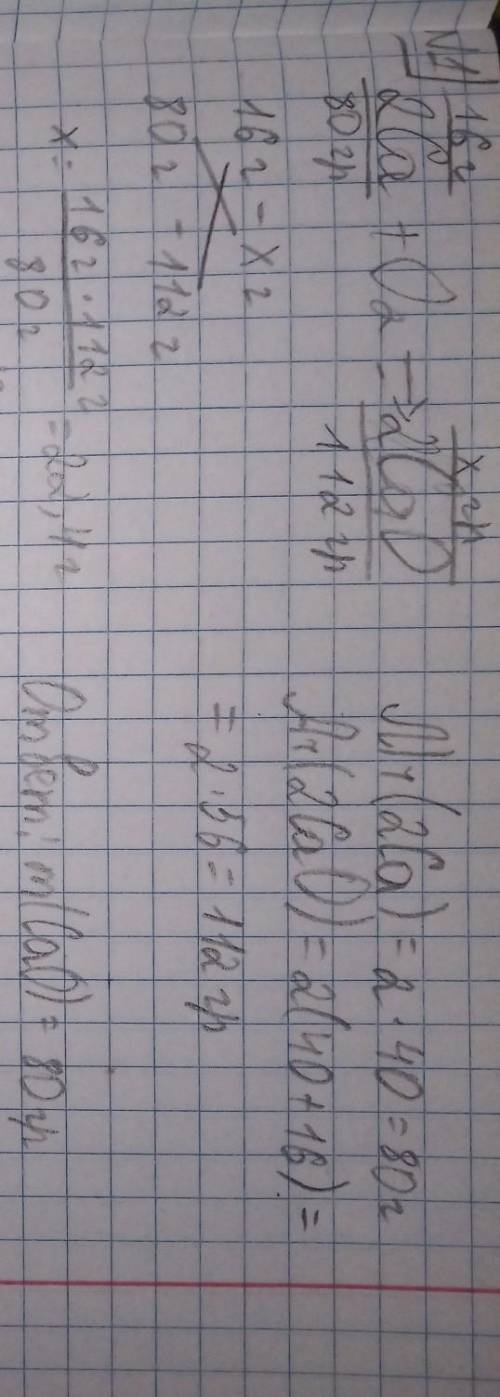 №1 16г x гр
2Ca + O2 → 2CaO
80 гр 112 гр
16г - x г
80г - 112 г
x = 16г · 112 г / 80г = 22,4г
Mr(2Ca) = 2 · 40 = 80г
Mr(2CaO) = 2(40+16) =
= 2·56 = 112 гр
Ответ: m(CaO) = 80гр